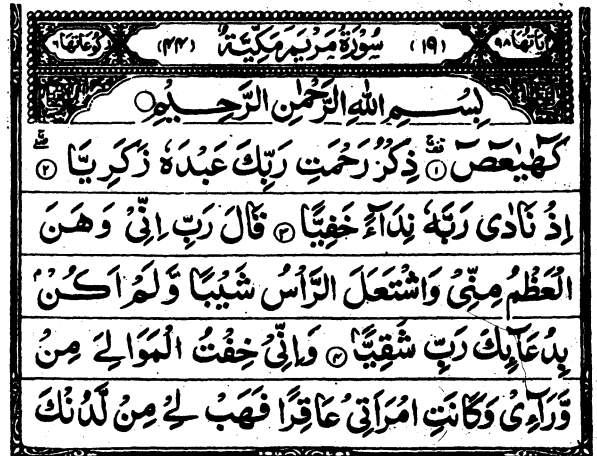 اٰیَاتُهَا ۹۸ (۱۹) سُوْرَةُ مَرْیَمَ مَكِّیَّةٌ (۴۴) رُكُوْعَاتُهَا ۶
بِسْمِ اللّٰهِ الرَّحْمٰنِ الرَّحِیْمِ
كٓهٰیٰعٓصٓ ۱ ذِكْرُ رَحْمَتِ رَبِّكَ عَبْدَهٗ زَكَرِیَّا ۲
اِذْ نَادٰی رَبَّهٗ نِدَآءً خَفِیًّا ۳ قَالَ رَبِّ اِنِّیْ وَهَنَ
الْعَظْمُ مِنِّیْ وَاشْتَعَلَ الرَّاْسُ شَیْبًا وَّلَمْ اَكُنْۢ
بِدُعَآئِكَ رَبِّ شَقِیًّا ۴ وَاِنِّیْ خِفْتُ الْمَوَالِیَ مِنْ
وَّرَآءِیْ وَكَانَتِ امْرَاَتِیْ عَاقِرًا فَهَبْ لِیْ مِنْ لَّدُنْكَ